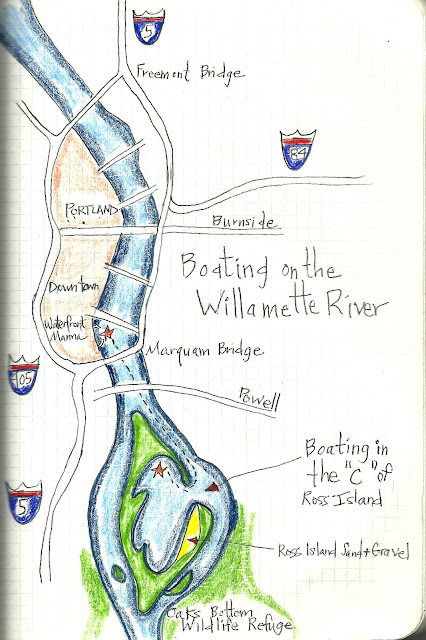 5
Freemont Bridge
84
PORTLAND
Burnside
Boating on the
Willamette River
Downtown
Waterfront
Marina
Marquam Bridge
405
Powell
Boating in
the "C" of
Ross Island
5
Ross Island Sand + Gravel
Oaks Bottom
Wildlife Refuge